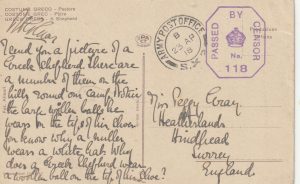 COSTUME GRECO - Pastore
COSTUME GREC - Pâtre
GREEK - A Shepherd
Send you a picture of a
Greek Shepherd There are
a number of them on the
hills round our camp. Notice
the large woollen balls he
wears on the tops of his shoes
You know why a miller
wears a white hat. Why
does a Greek Shepherd wear
a woollen ball on the top of his shoe?
ARMY POST OFFICE
S.X.
PASSED BY CENSOR
No.
118
Miss Peggy Gray
Heatherlands
Hindhead
Surrey
England